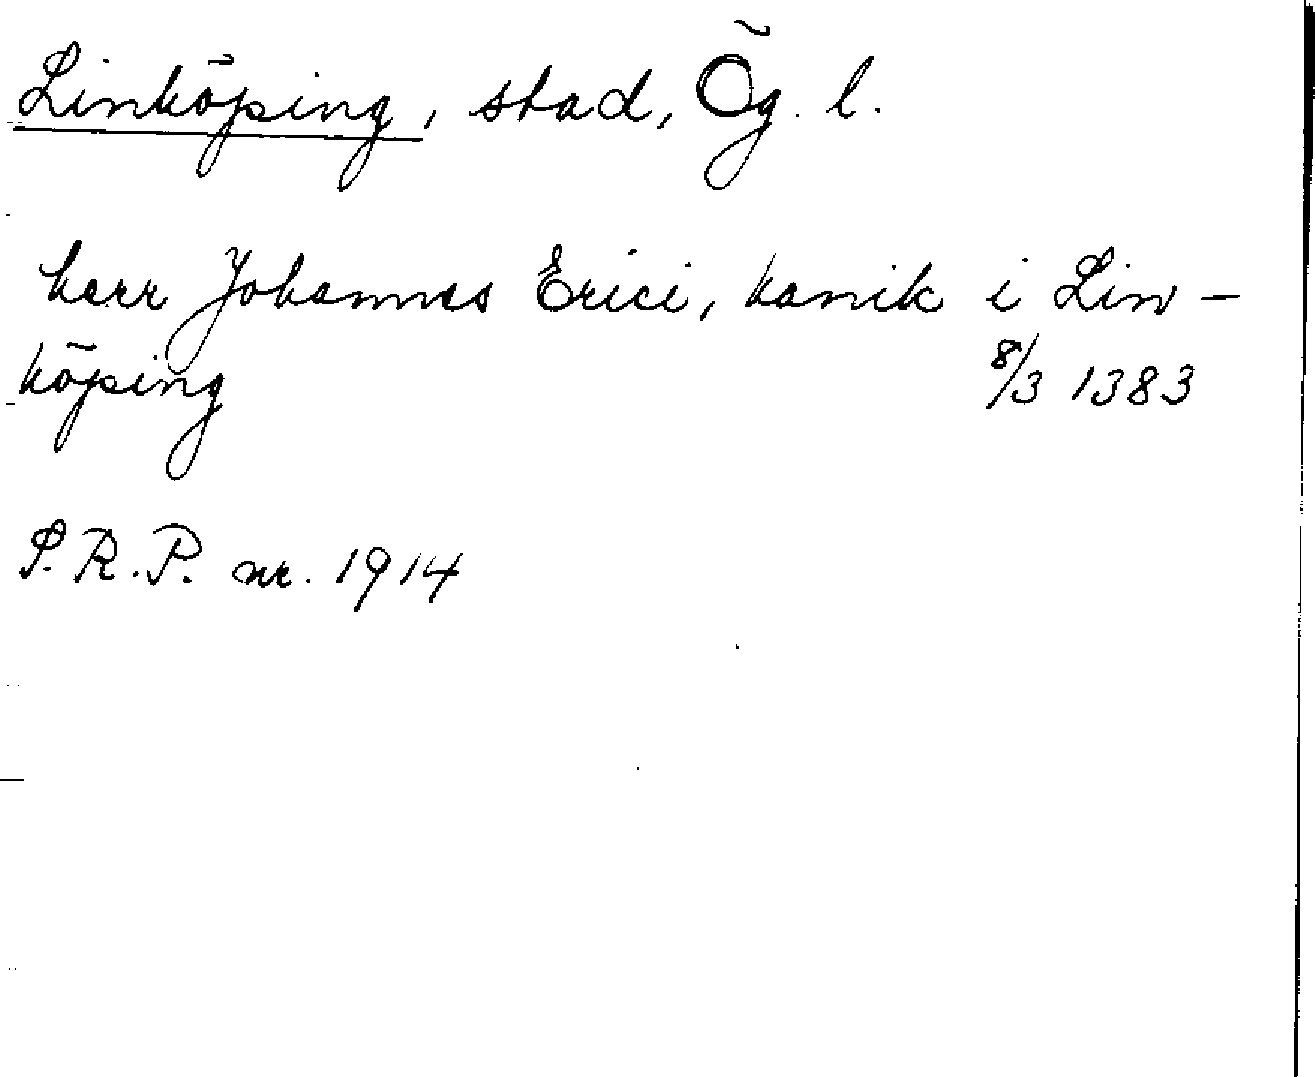 Linköping, stad, Ög. l.
herr Johannes Erici, kanik i Lin-
köping 8/3 1383
S.R.P. nr. 1914